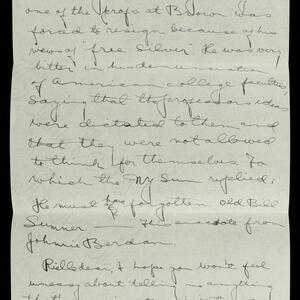 one of the profs at Brown was
forced to resign because of his
views of "free Silver" He was very
bitter in his denunciation
of American college faculties,
saying that the professors ideas
were dictated to them and
that they were not allowed
to think for themselves. To
which the NY Sun replied:
He must have forgotten Old Bill
Sumner. — This anecdote from
Johnnie Berdan.
dear, I hope you won't feel
uneasy about telling me anything